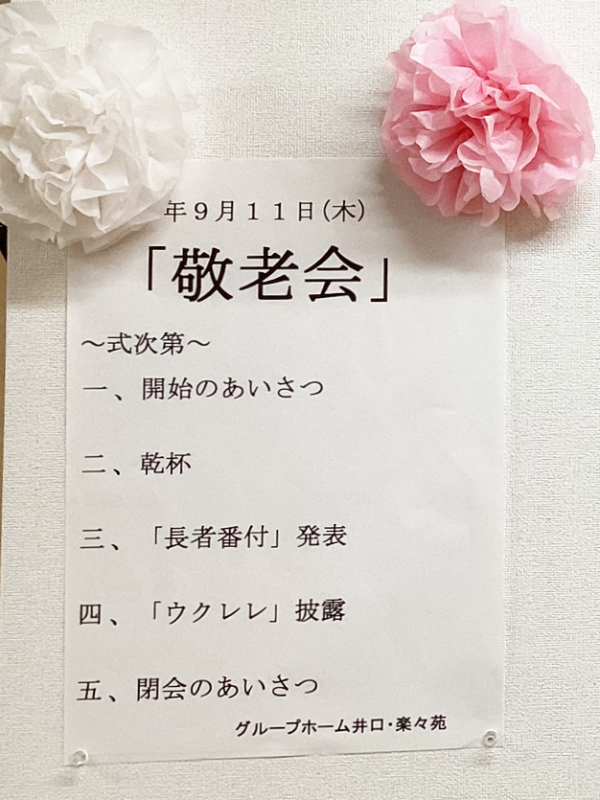 年９月１１日(木)
「敬老会」
～式次第～
一、開始のあいさつ
二、乾杯
三、「長者番付」発表
四、「ウクレレ」披露
五、閉会のあいさつ
グループホーム井口・楽々苑